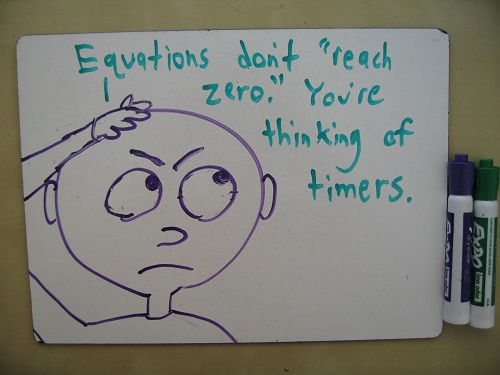 Equations don't "reach
zero." You're
thinking of
timers.
EXPO
EXPO